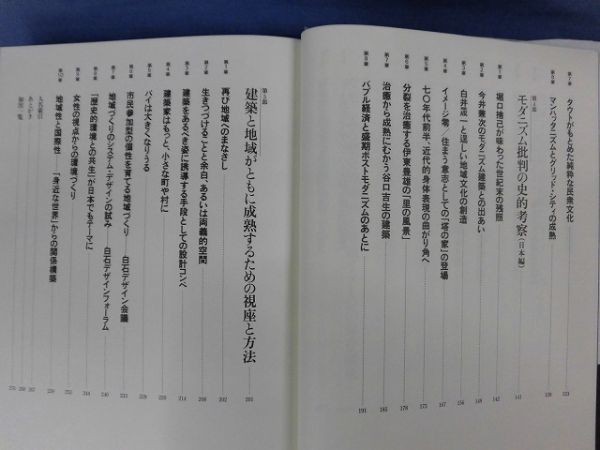 第7章 タウトがもとめた純粋な民衆文化 123
第8章 マンハッタニズムとグリッド・シティの成熟
第4部
モダニズム批判の史的考察（日本編） 141
第1章 堀口捨己が味わった世紀末の残照 142
第2章 今井兼次のモダニズム建築との出あい 149
第3章 白井成一と逞しい地域文化の創造 156
第4章 イメージ零／住まう意志としての「塔の家」の登場
第5章 七〇年代前半、近代的身体表現の曲がり角へ 167
第6章 分裂を治癒する伊東豊雄の「里の風景」 178
第7章 治癒から成熟にむかう谷口吉生の建築
第8章 バブル経済と盛期ポストモダニズムのあとに 191
第5部
建築と地域がともに成熟するための視座と方法 201
第1章 再び地域へのまなざし 202
第2章 生きつづけることと余白、あるいは両義的空間
第3章 建築をあるべき姿に誘導する手段としての設計コンペ 214
第4章 建築家はもっと、小さな町や村に
第5章 パイは大きくなりうる
第6章 市民参加型の個性を育てる地域づくり 白石デザイン会議
第7章 地域づくりのシステム・デザインの試み 白石デザインフォーラム
第8章 「歴史的環境との共生」が日本でもテーマに
第9章 女性の視点からの環境づくり
第10章 地域性と国際性 「身近な世界」からの関係構築
人名索引
あとがき
初出一覧